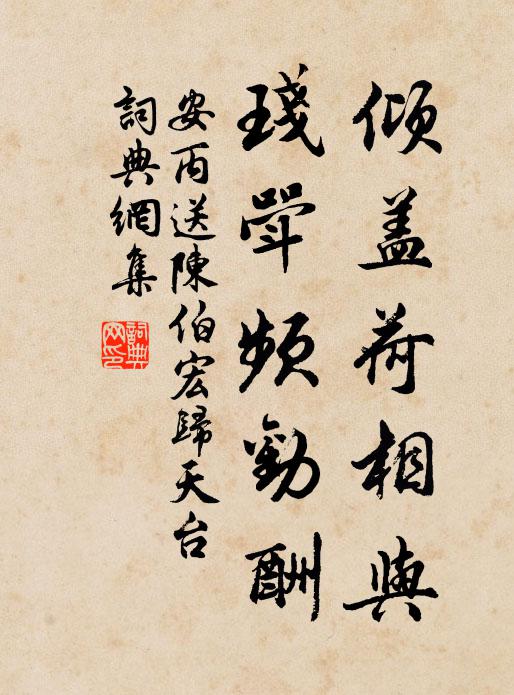 傾蓋荷相與
琖斝頻勸酬
安丙送陳伯宏歸天台
詞典網集
詞典網印